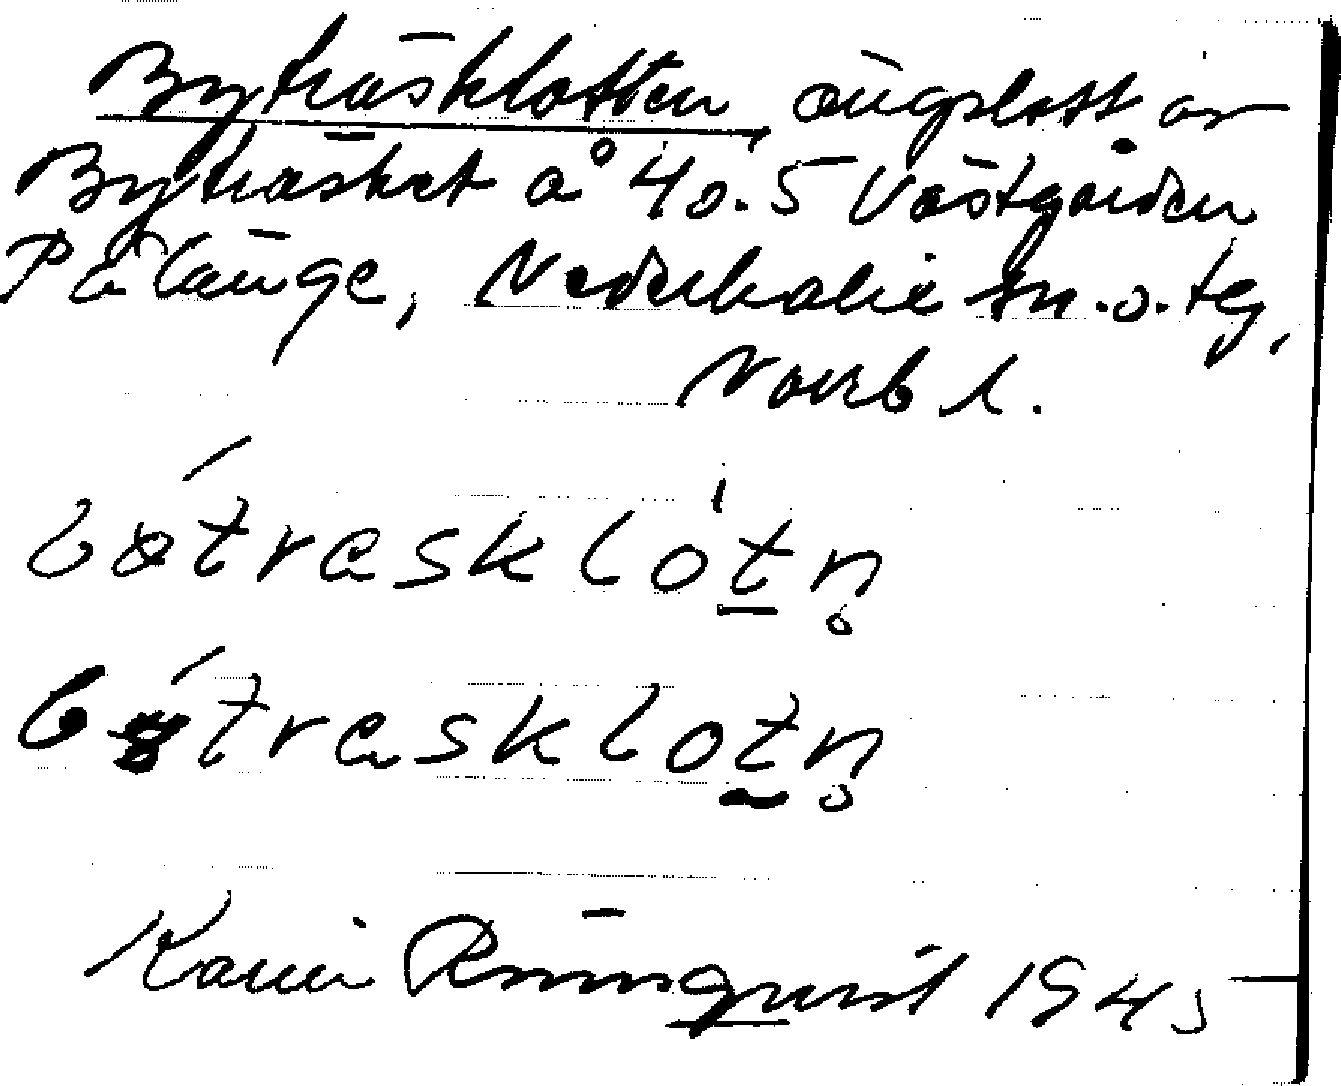 Byträsklotten, ängslott av
Byträsket å 40.5 Västgården
Pålänge, Nederkalix sn. o. tg,
Norrb l.
træsklótn̥
træsklotn̥
Karin Rönnquist 1945